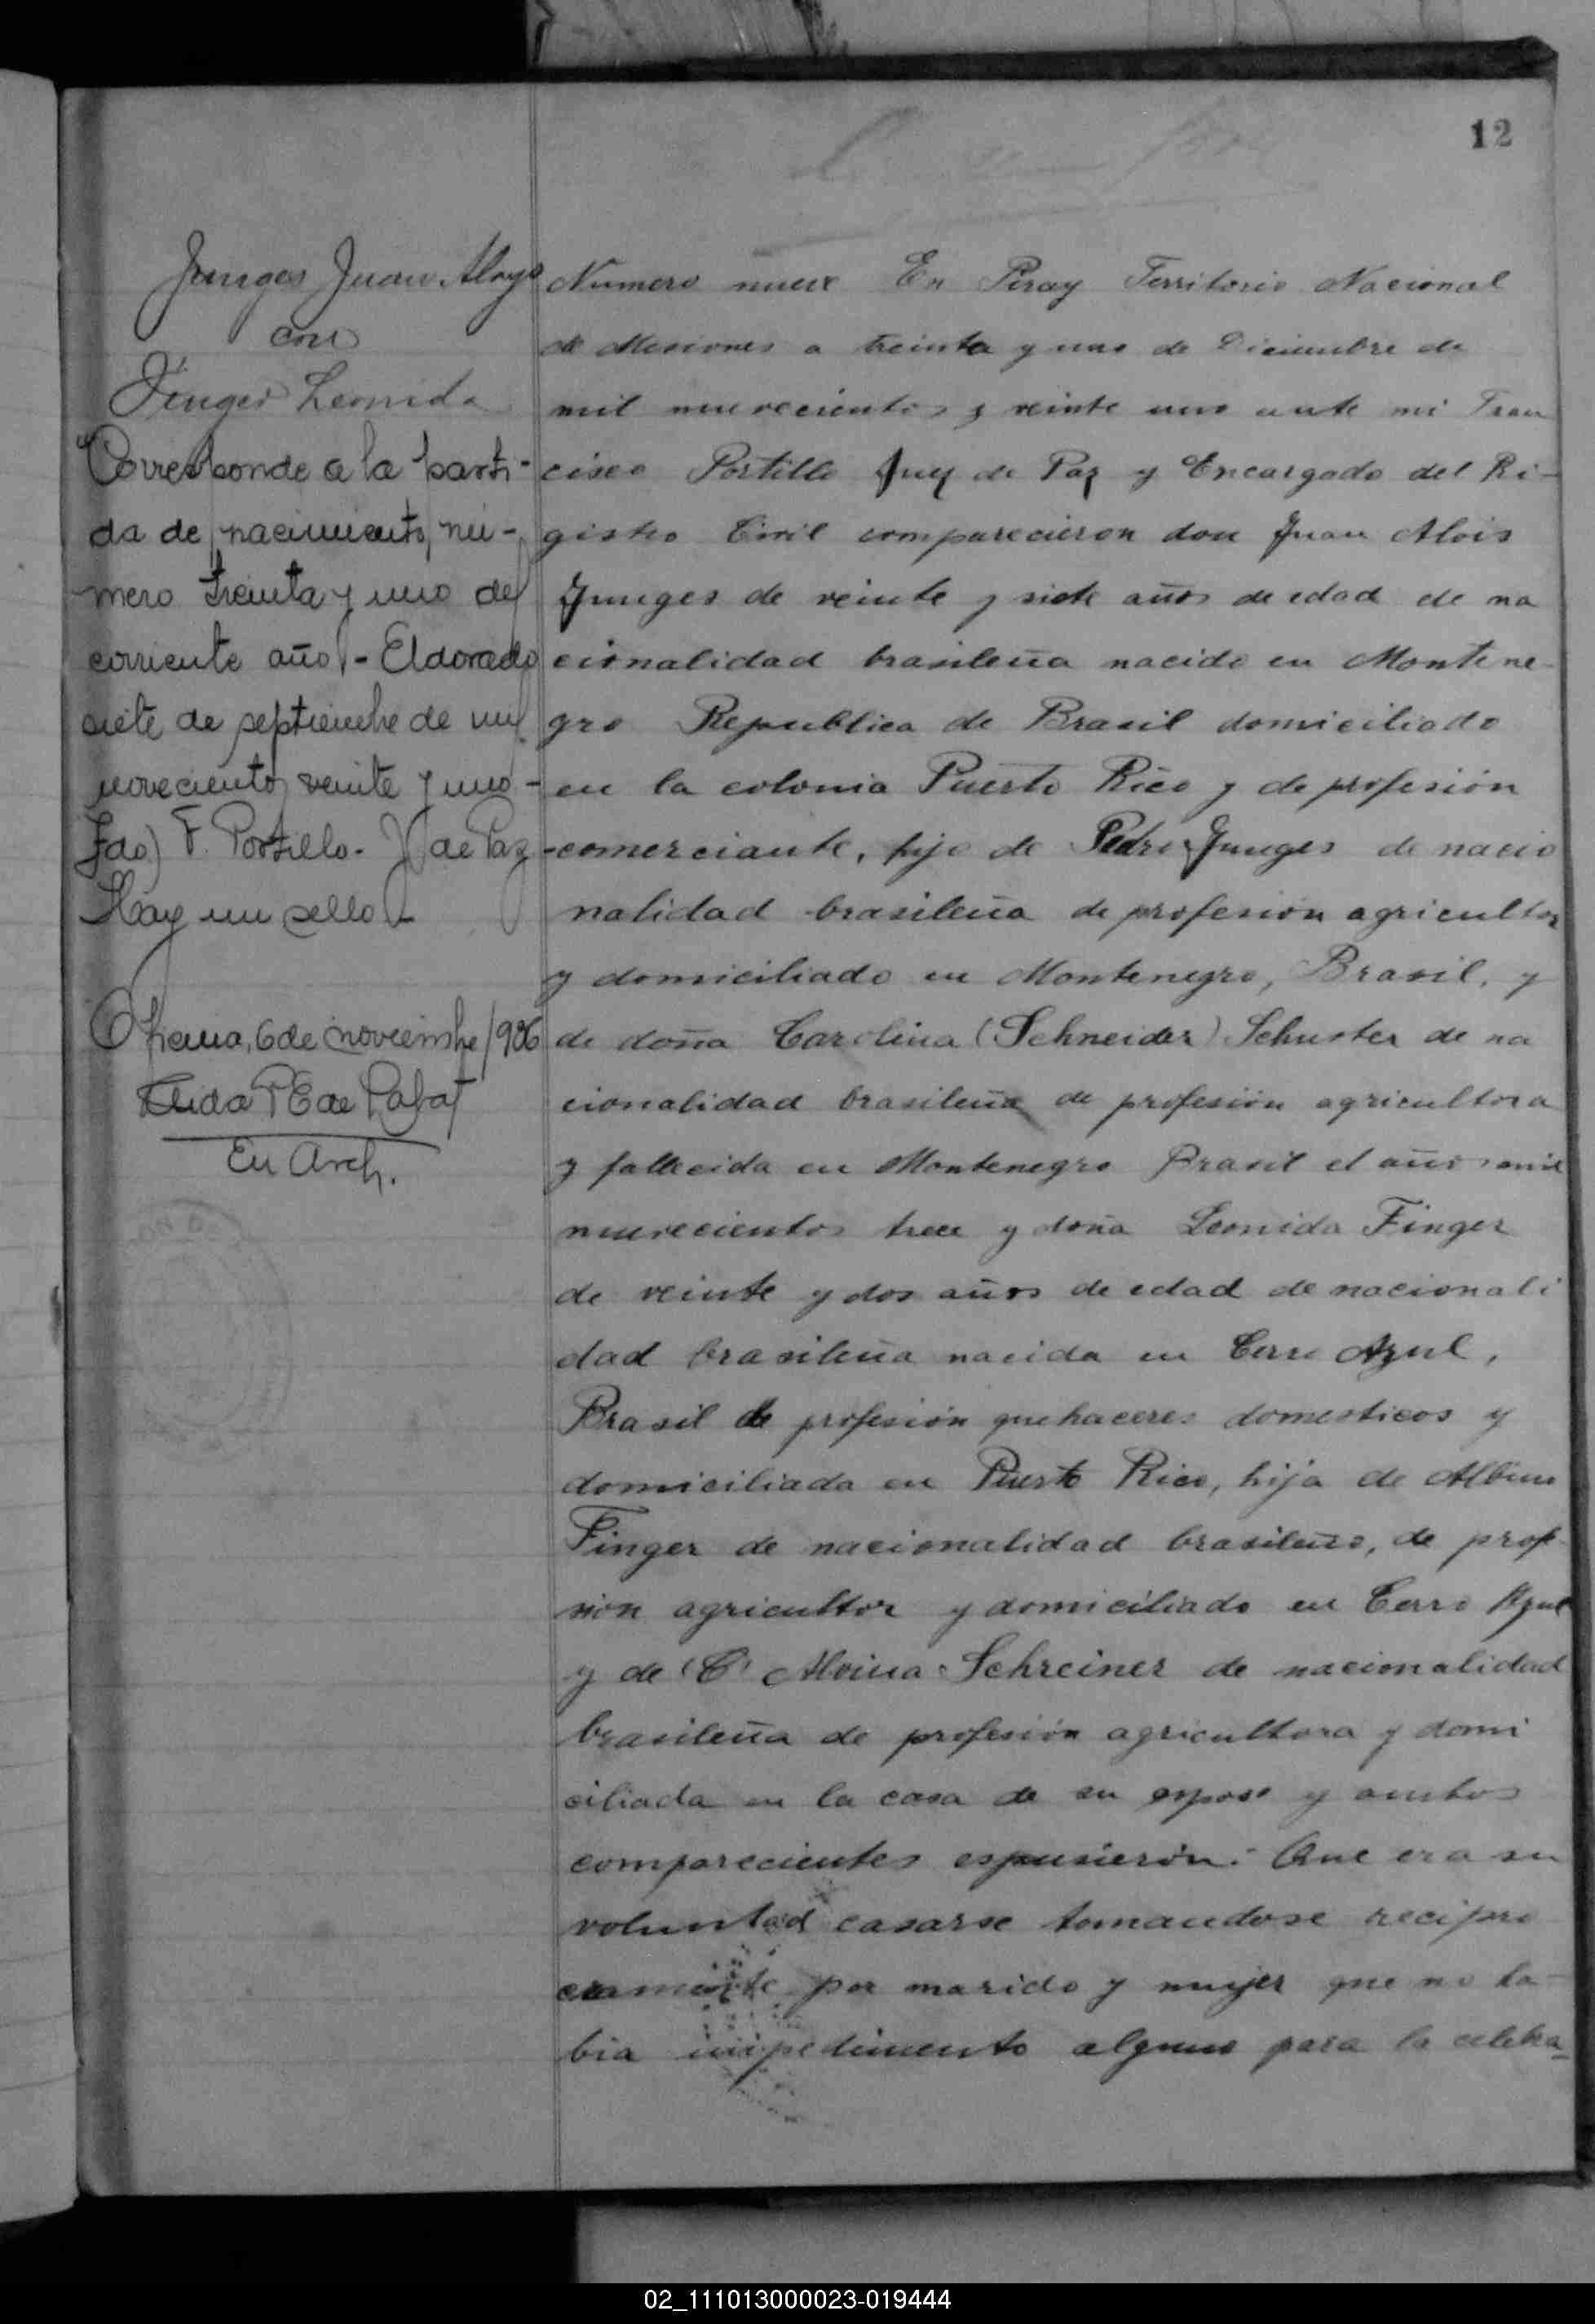 12
Junges Juan Aloys
con
Finger Leonida
Corresponde a la parti-
da de nacimiento, nú-
mero treinta y uno del
corriente año - Eldorado
siete de septiembre de mil
novecientos veinte y uno -
Fdo) F. Portillo. J de Paz
Hay un sello
6 de noviembre/936
En Arch.
Numero nueve En Piray Territorio Nacional
de Misiones a treinta y uno de Diciembre de
mil nuevecientos y veinte uno ante mi Fran
cisco Portillo Juez de Paz y Encargado del Ri-
gistro Civil comparecieron don Juan Alois
Junges de veinte y siete años de edad de na
cionalidad brasileña nacido en Montene-
gro Republica de Brasil domiciliado
en la colonia Puerto Rico y de profesión
comerciante, hijo de Pedro Junges de nacio
nalidad brasileña de profesión agricultor
y domiciliado en Montenegro, Brasil, y
de doña Carolina (Schneider) Schuster de na
cionalidad brasileña de profesión agricultora
y fallecida en Montenegro Brasil el año mil
nuevecientos trece y doña Leonida Finger
de veinte y dos años de edad de nacionali
dad brasileña nacida en Cerro Azul,
Brasil de profesión quehaceres domesticos y
domiciliada en Puerto Rico, hija de Albino
Finger de nacionalidad brasileño, de profe
sion agricultor y domiciliado en Cerro Azul
y de (C) Alvina Schreiner de nacionalidad
brasileña de profesión agricultora y domi
ciliada en la casa de su esposo y ambos
comparecientes espusierón: Que era su
voluntad casarse tomandose recipro
camente por marido y mujer que no ha-
bia impedimento alguno para la celebra-
02_111013000023-019444